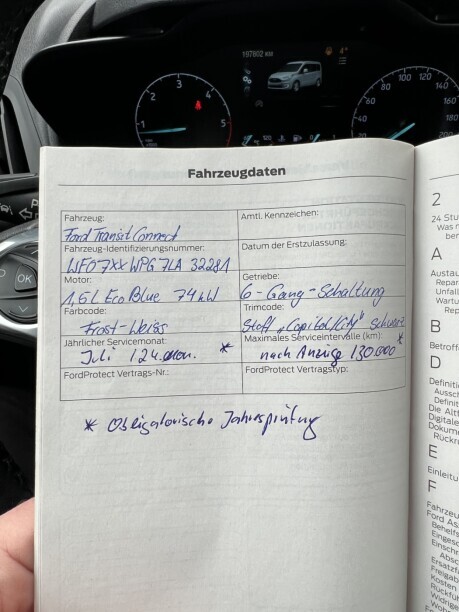 197802
2
3
4
1
5
20
40
60
80
100
120
140
200
OK
Fahrzeugdaten
Fahrzeug:
Ford Transit Connect
Amtl. Kennzeichen:
Fahrzeug-Identifizierungsnummer:
WF07XXWPG7LA 32281
Datum der Erstzulassung:
Motor:
1,5L EcoBlue 74kW
Getriebe:
6-Gang-Schaltung
Farbcode:
Frost-Weiss
Trimcode:
Stoff "Capitol/City" Schwarz
Jährlicher Servicemonat:
Juli / 24. Mon. *
Maximales Serviceintervalle (km):
nach Anzeige / 30.000 *
FordProtect Vertrags-Nr.:
FordProtect Vertragstyp:
* Obligatorische Jahresprüfung
2
24 Stu
Was
A
Austau
Repar
Unfall
Wartu
Rep
B
Betroff
D
Definiti
Aussch
Definit
Die Altf
Digitale
Dokum
Rückru
E
Einleitu
F
Fahrzeu
Ford As
Behelfs
Eingesc
Einschr
Absc
Ersatzfa
Freigab
Kosten
Rückfüh
Widrig